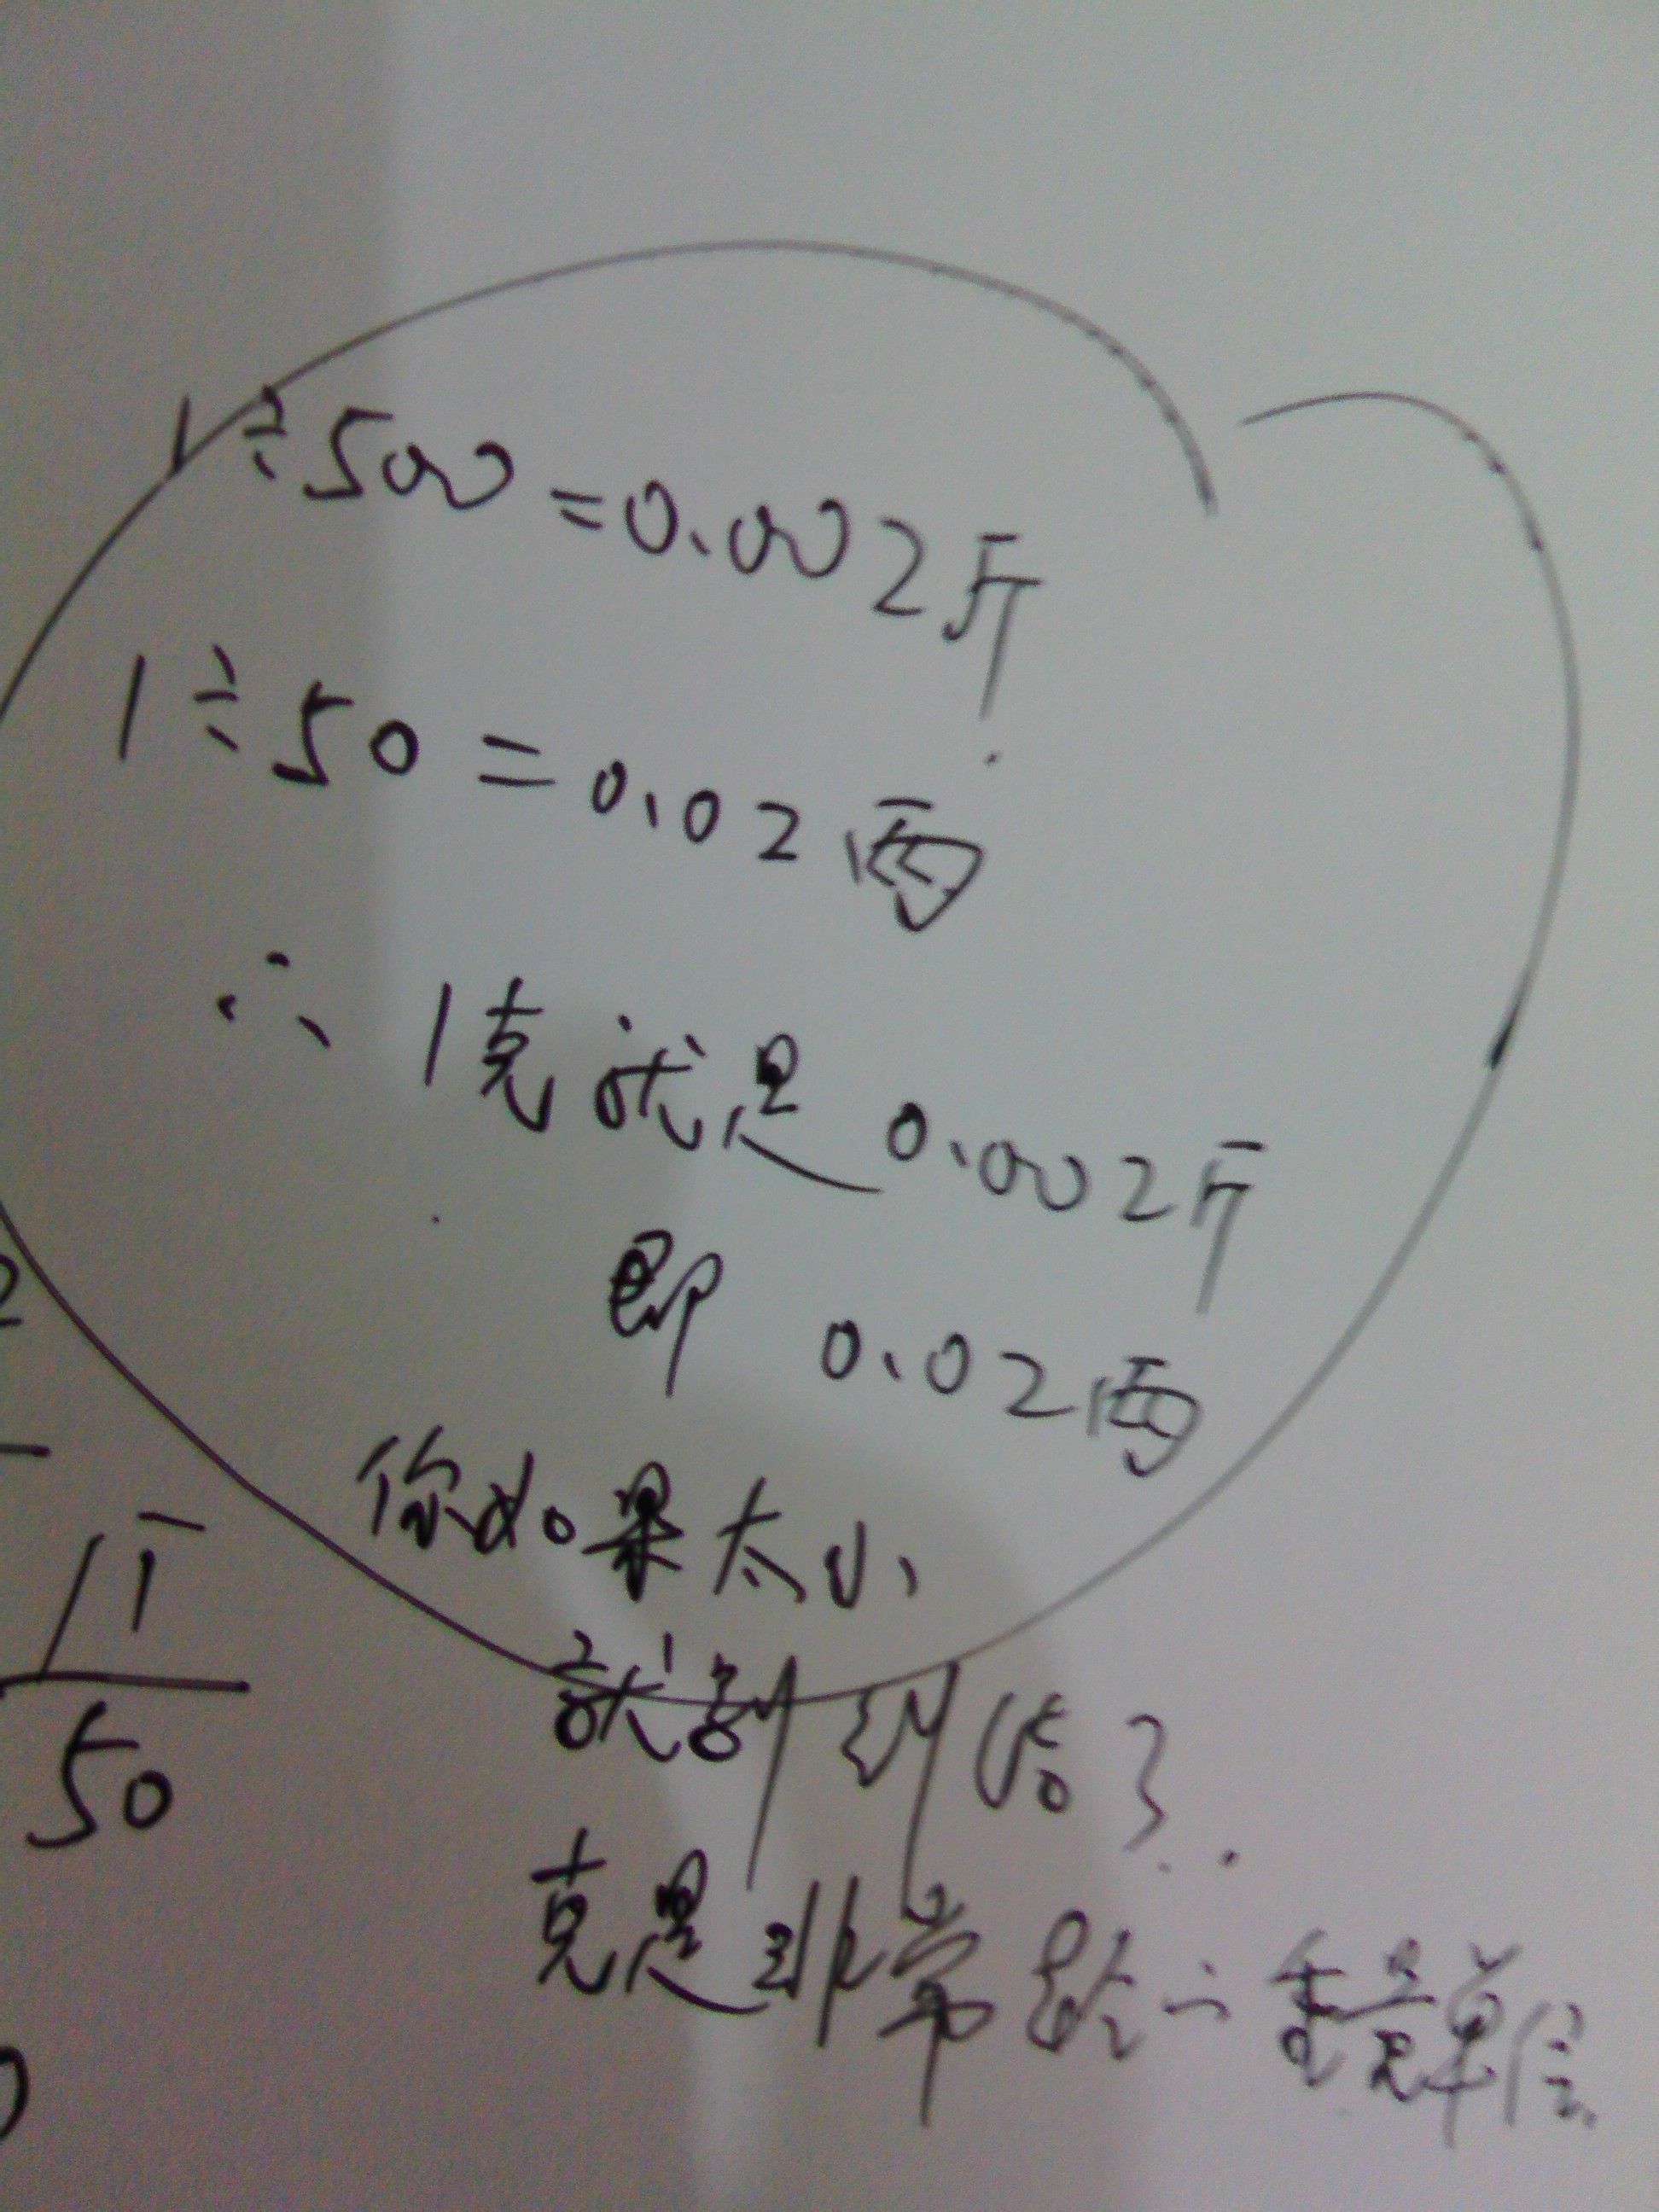 1÷500=0.002斤
1÷50=0.02两
∴ 1克就是0.002斤
即 0.02两
你如果太小
就割到给了.
克是非常 一 重量单位
1斤
50